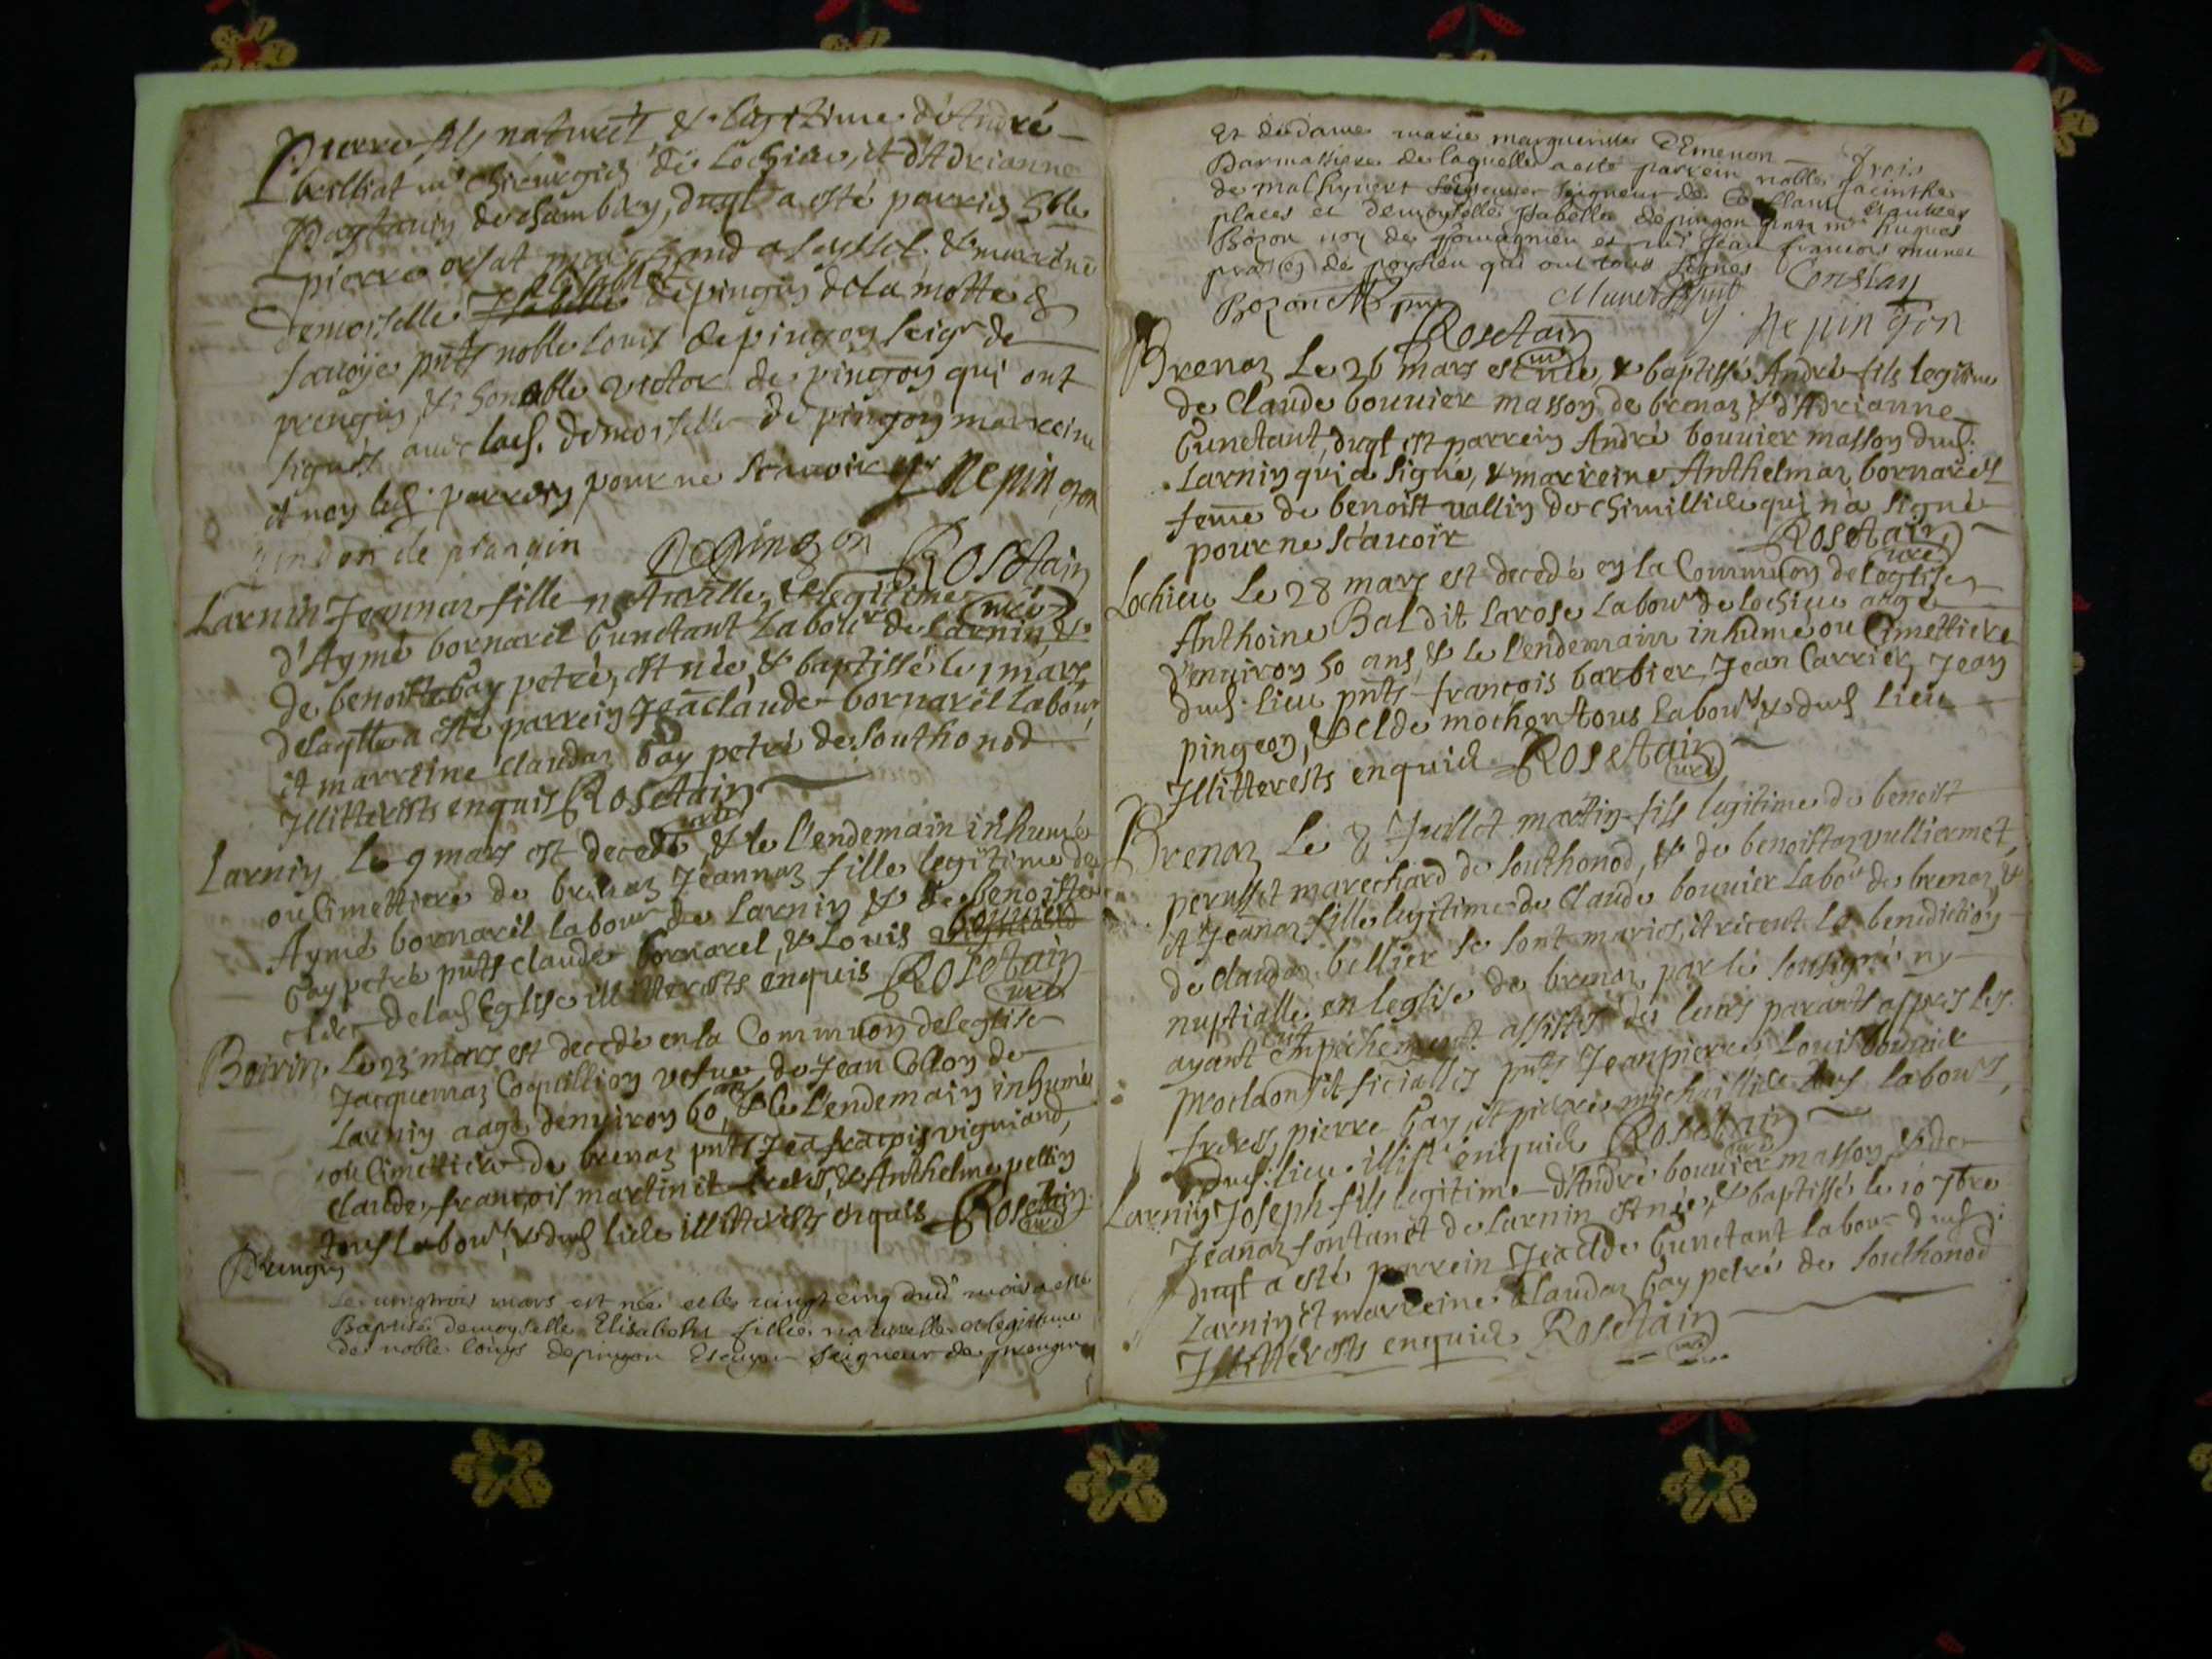 Pierre fils naturel & legitime d'André
brilliat mᵉ Chirurgien de Lochieu, et d'Adrianne
de chambery, duql a esté parrein hble
pierre orsat marchand a seyssel. & marreine
demoiselle Isabelle depingon dela motte &
savoÿe pnts noble Louis depingon seigr de
prengin, & honoble victor de pingon qui ont
signés avec lad. demoiselle de pingon marreine
et non led. parrein pour ne scavoir Depingon
de prangin Depingon Rosetain
curé
Larnin Jeannaz fille naturelle, & legitime
d'Aymé bornarel Cunctant Labour de Larnin, &
de benoiste Gay petré, est née, & baptissé le 1 mars
delaqlle a esté parrein Jeāclaude bornarel Labour
et marreine claudaz Gay petré de southonod
Illitterests enquis Rosetain
curé
Larnin Le 9 mars est decedé, & le l'endemain inhumé
ou Cimettiere de brenaz Jeannaz fille legitime de
Aymé bornarel labour de Larnin & de benoiste
Gay petré pnts claude bornarel, & Louis
clerc de lad Eglise illitterests enquis Rosetain
curé
Boirin. Le 23 mars est decedé en la Commuon de leglise
Jacquemaz Coquillion vefue de Jean Collon de
Larnin aagé denviron 60 ans, & le l'endemain inhumé
ou Cimettiere de brenaz pnts Jeā francois vigniand,
claude, francois martinet freres, & Anthelme pellin
tous labours, & dud lieu illitterests enquis Rosetain
curé
Prengin
Le vingtrois mars est née et le vingt cinq dud mois a esté
Baptisé demoyselle Elisabeht fillie naturelle et legittime
de noble Louys depingon Escuyer seigneur de prengin
Et de dame marie marguerite DEmenon
Parmassiere de laquelle a esté parrein noble Jacinthe
de malhyvert seigneur de Conflans et autres
places et demoyselle Isabelle depingon pnts mʳ hugues
Bozon de et mʳ Jean francois munet
de poysieu qui ont tous signes Conflan
Bozon pnt Munet pnt Depingon
Rosetain
curé
Brenaz Le 26 mars est née & baptissé André fils legitime
de Claude bouuier masson de brenaz & d'Adrianne
Cunctant, duql est parrein André bouuier masson dud:
Larnin qui a signé, & marreine Anthelmaz bornarel
feme de benoist vallin de chimillieu qui n'a signé
pour ne scauoir Rosetain
curé
Lochieu Le 28 mars est decedé en la Commuon de leglise
Anthoine Baldit Larose Labour de lochieu aagé
d'enuiron 50 ans, & le l'endemain inhumé ou Cimettiere
dud. lieu pnts francois barbier, Jean Carrier, Jean
pingeon, & clde mochon tous Labours & dud lieu
Illitterests enquis Rosetain
curé
Brenaz Le 8 Juillet martin fils legitime de benoist
perusset marechard de southonod, & de benoistaz vulliermet,
et Jeañaz fille legitime de Claude bouuier Labour de brenaz, &
de claudaz bellier se sont mariés, et ricent la benediction
nuptialle en leglise de brenaz par le sousigné ny
ayant eut empechement assistés de leurs parants appres les
proclaon fit ficialles pnts Jeanpierre, Louis bouuier
freres, pierre Gay, et pierre michaillier tous labours,
dud: lieu. illist enquis Rosetain
curé
Larnin Joseph fils legitime d'André bouuier masson, & de
Jeañaz fontanet de Larnin est née, & baptissé le 10 7bre
duql a esté parrein Jeā clde Cunctant labour dud:
Larnin et marreine claudaz Gay petré de southonod
Illitterests enquis Rosetain
curé